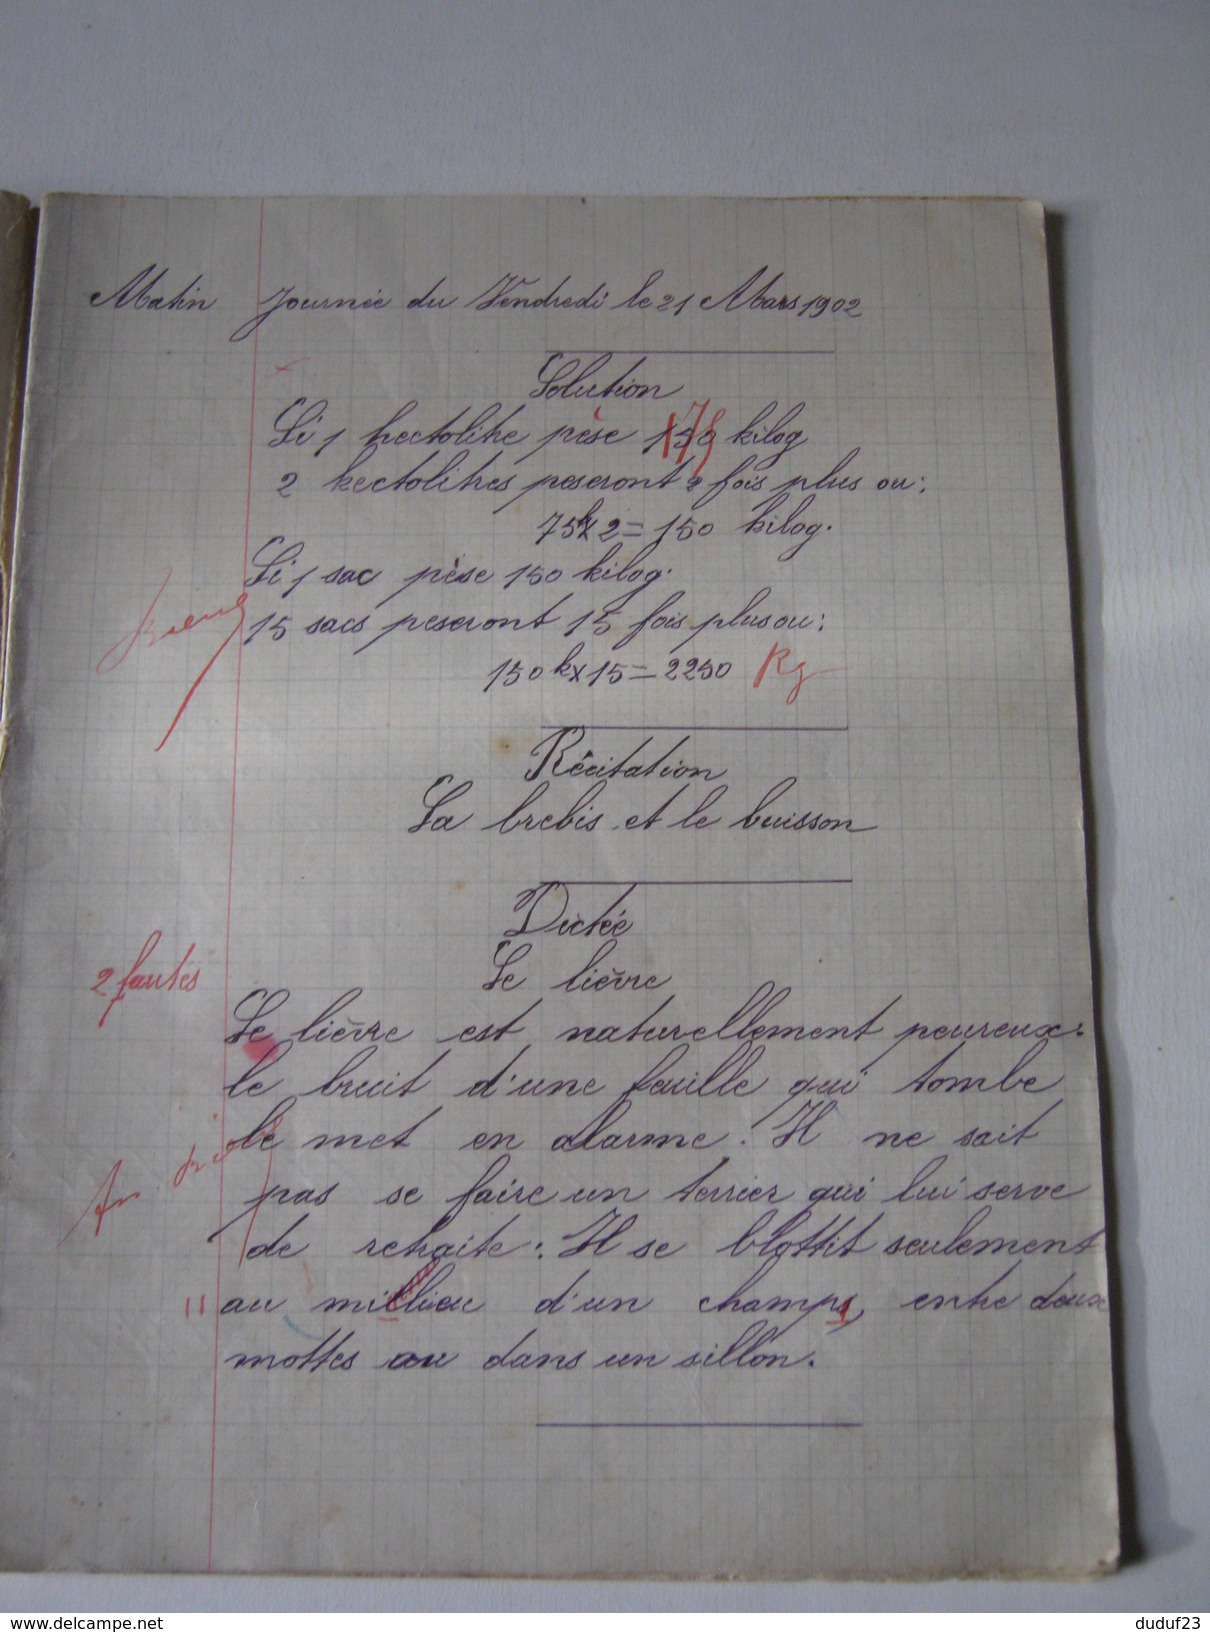 Matin Journée du Vendredi le 21 Mars 1902
Solution
Si 1 hectolitre pèse 150 75 kilog
2 hectolitres peseront 2 fois plus ou:
75k x 2 = 150 kilog.
Si 1 sac pèse 150 kilog.
15 sacs peseront 15 fois plus ou:
150 k x 15 = 2250 Kg
Récitation
La brebis et le buisson
Dictée
2 fautes
Le lièvre
Le lièvre est naturellement peureux:
le bruit d'une feuille qui tombe
le met en alarme. Il ne sait
pas se faire un terrier qui lui serve
de retraite: Il se blottit seulement
au millieu d'un champs, entre deux
mottes ou dans un sillon.
www.delcampe.net
duduf23